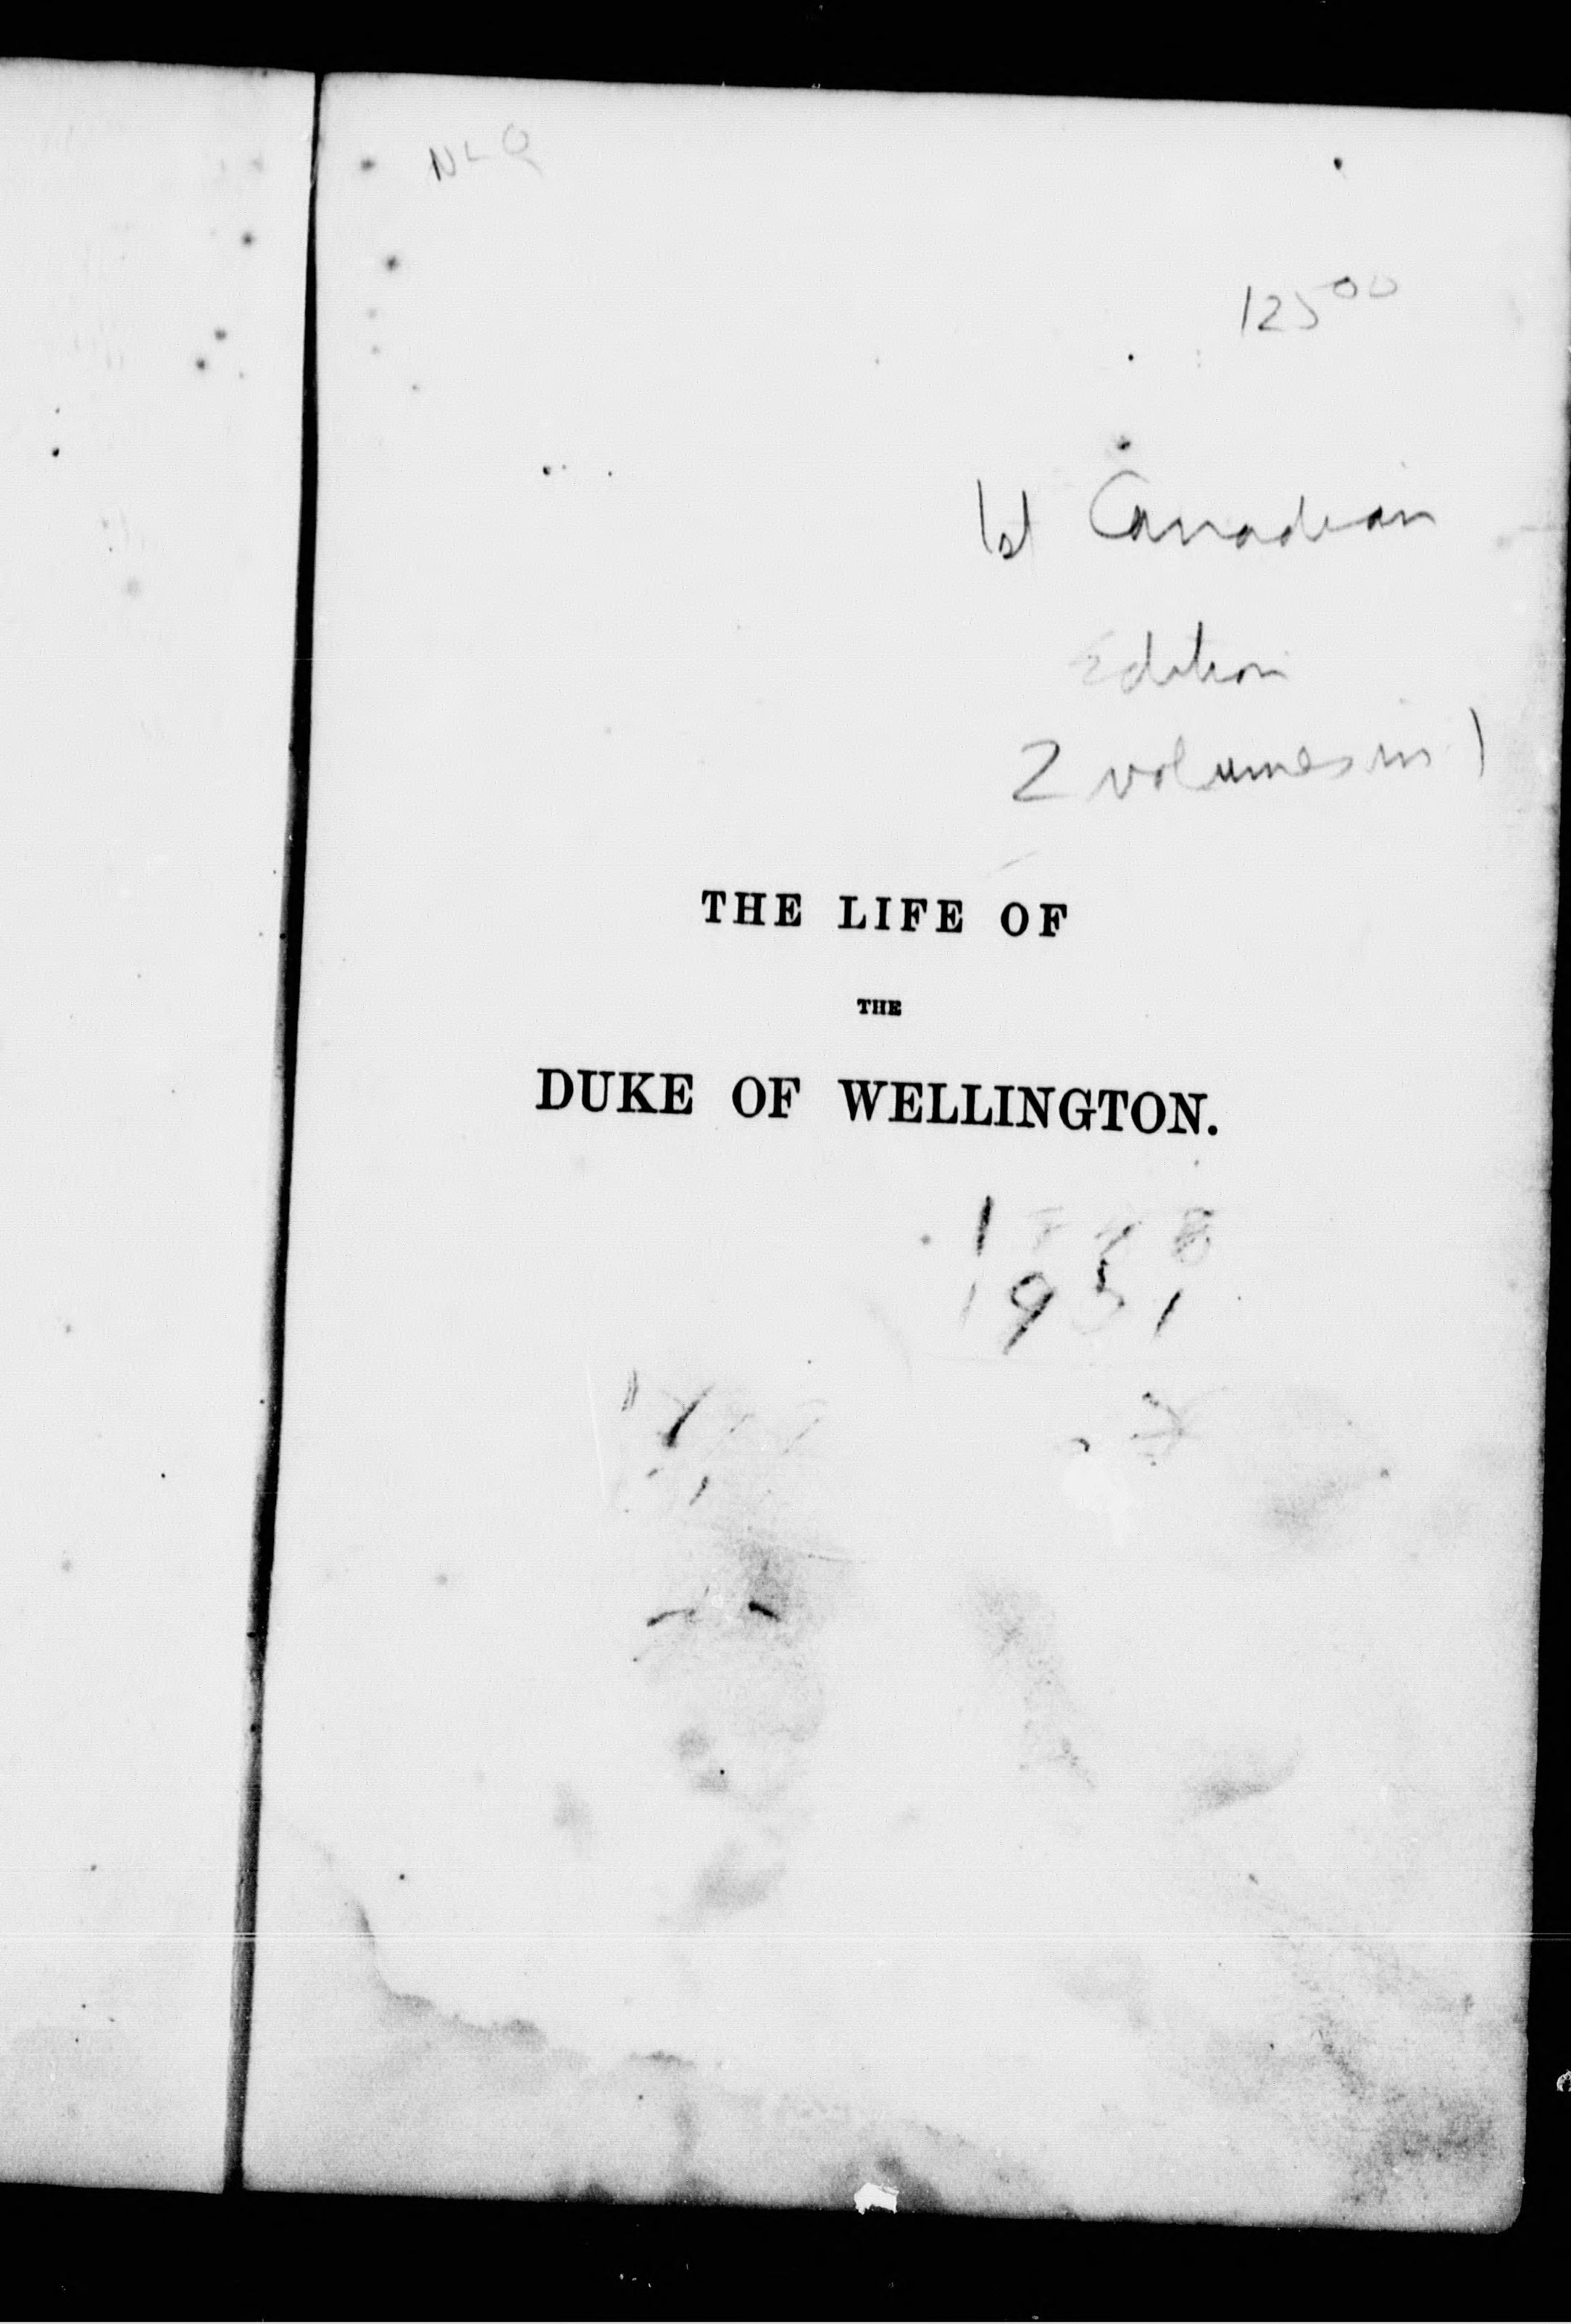 NLQ
125 00
1st Canadian
Edition
2 volumes in 1
THE LIFE OF
THE
DUKE OF WELLINGTON.
1951